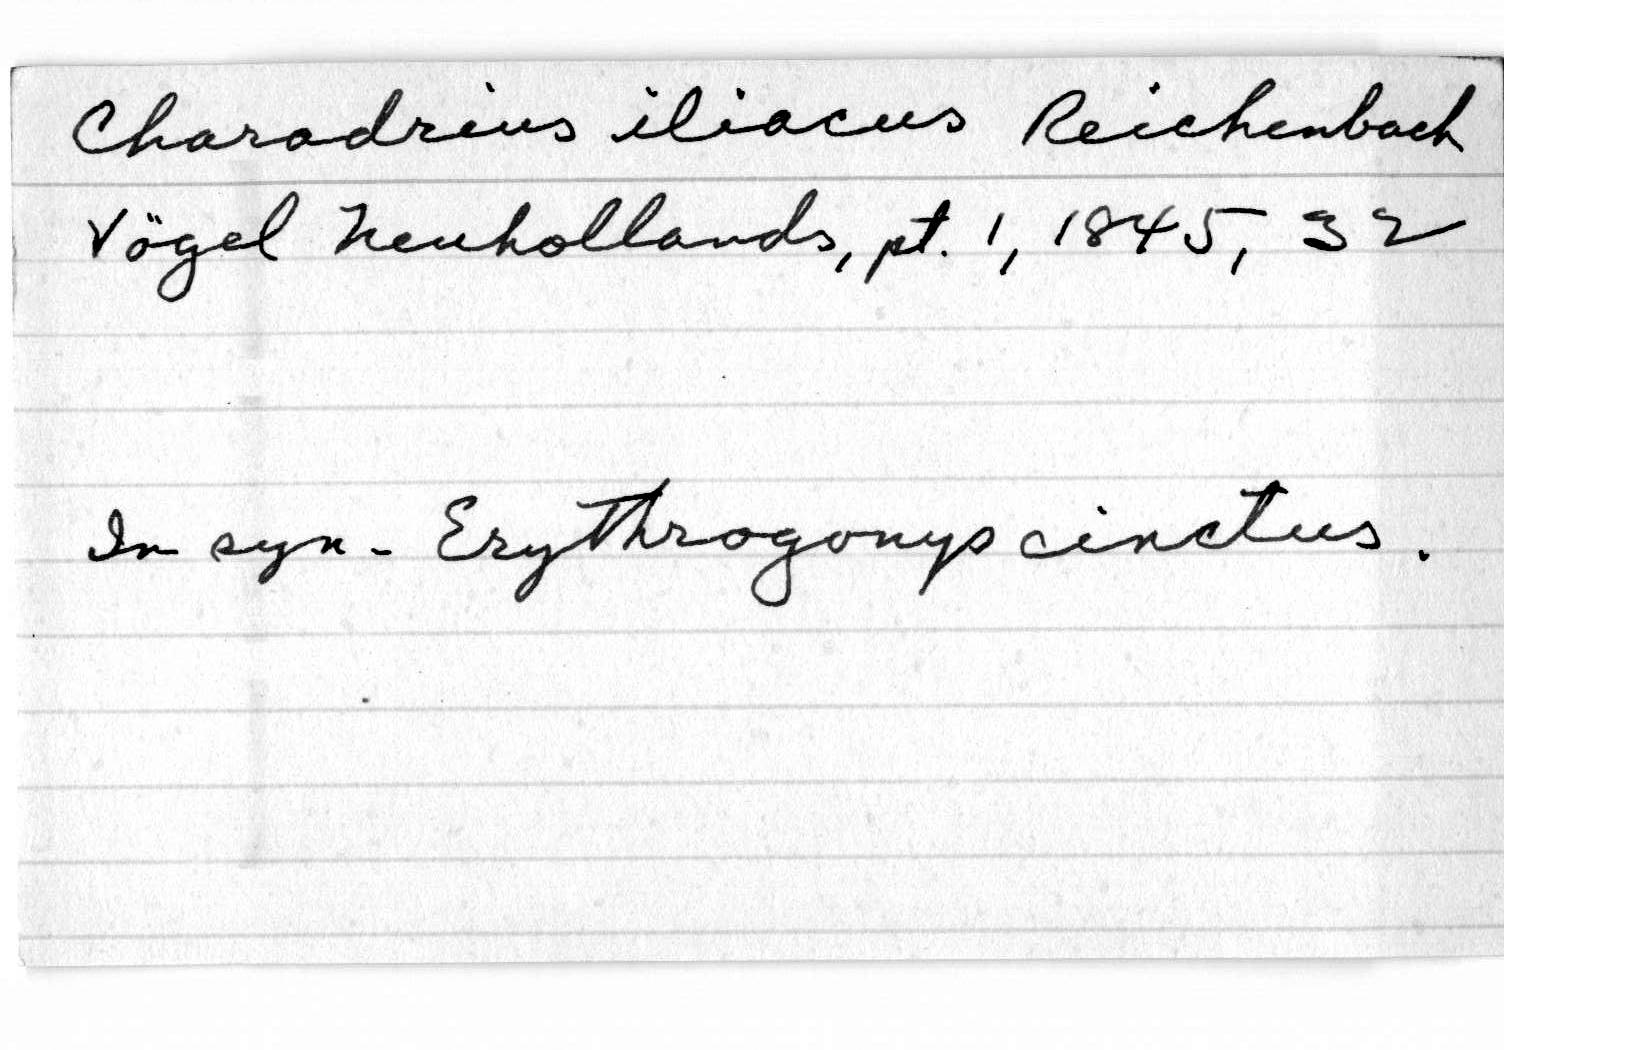 Charadrius iliacus Reichenbach
Vögel Neuhollands, pt. 1, 1845, 32
In syn - Erythrogonys cinctus.